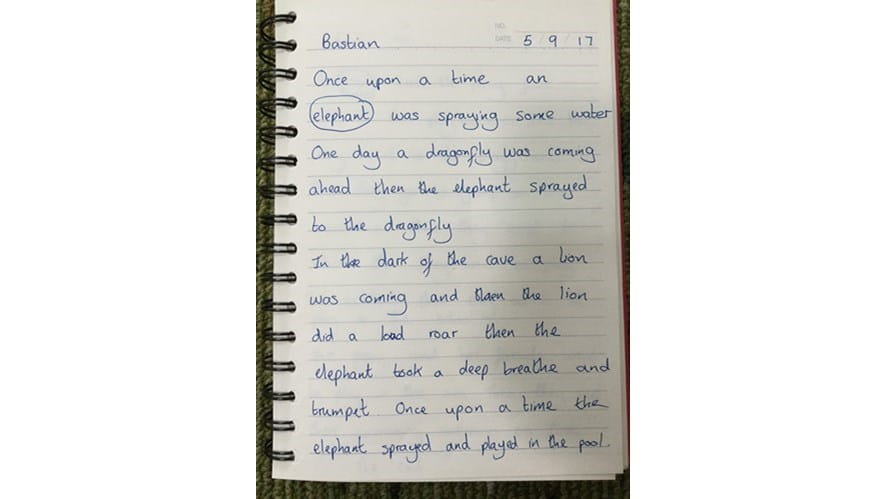 NO.
Bastian DATE 5 / 9 / 17
Once upon a time an
elephant was spraying some water
One day a dragonfly was coming
ahead then the elephant sprayed
to the dragonfly
In the dark of the cave a lion
was coming and then the lion
did a load roar then the
elephant took a deep breathe and
trumpet. Once upon a time the
elephant sprayed and played in the pool.